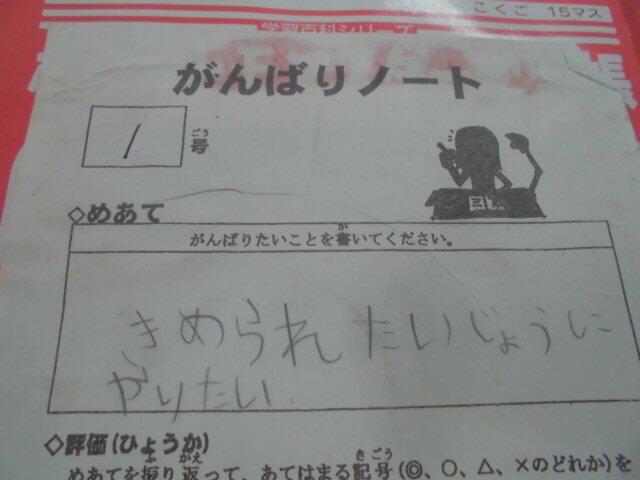 こくご 15マス
学習百科シリーズ
がんばりノート
1 号
ごう
◇めあて
がんばりたいことを書いてください。
か
きめられたいじょうに
やりたい
◇評価(ひょうか)
ふ かえ きごう
めあてを振り返って、あてはまる記号(◎、○、△、×のどれか)を